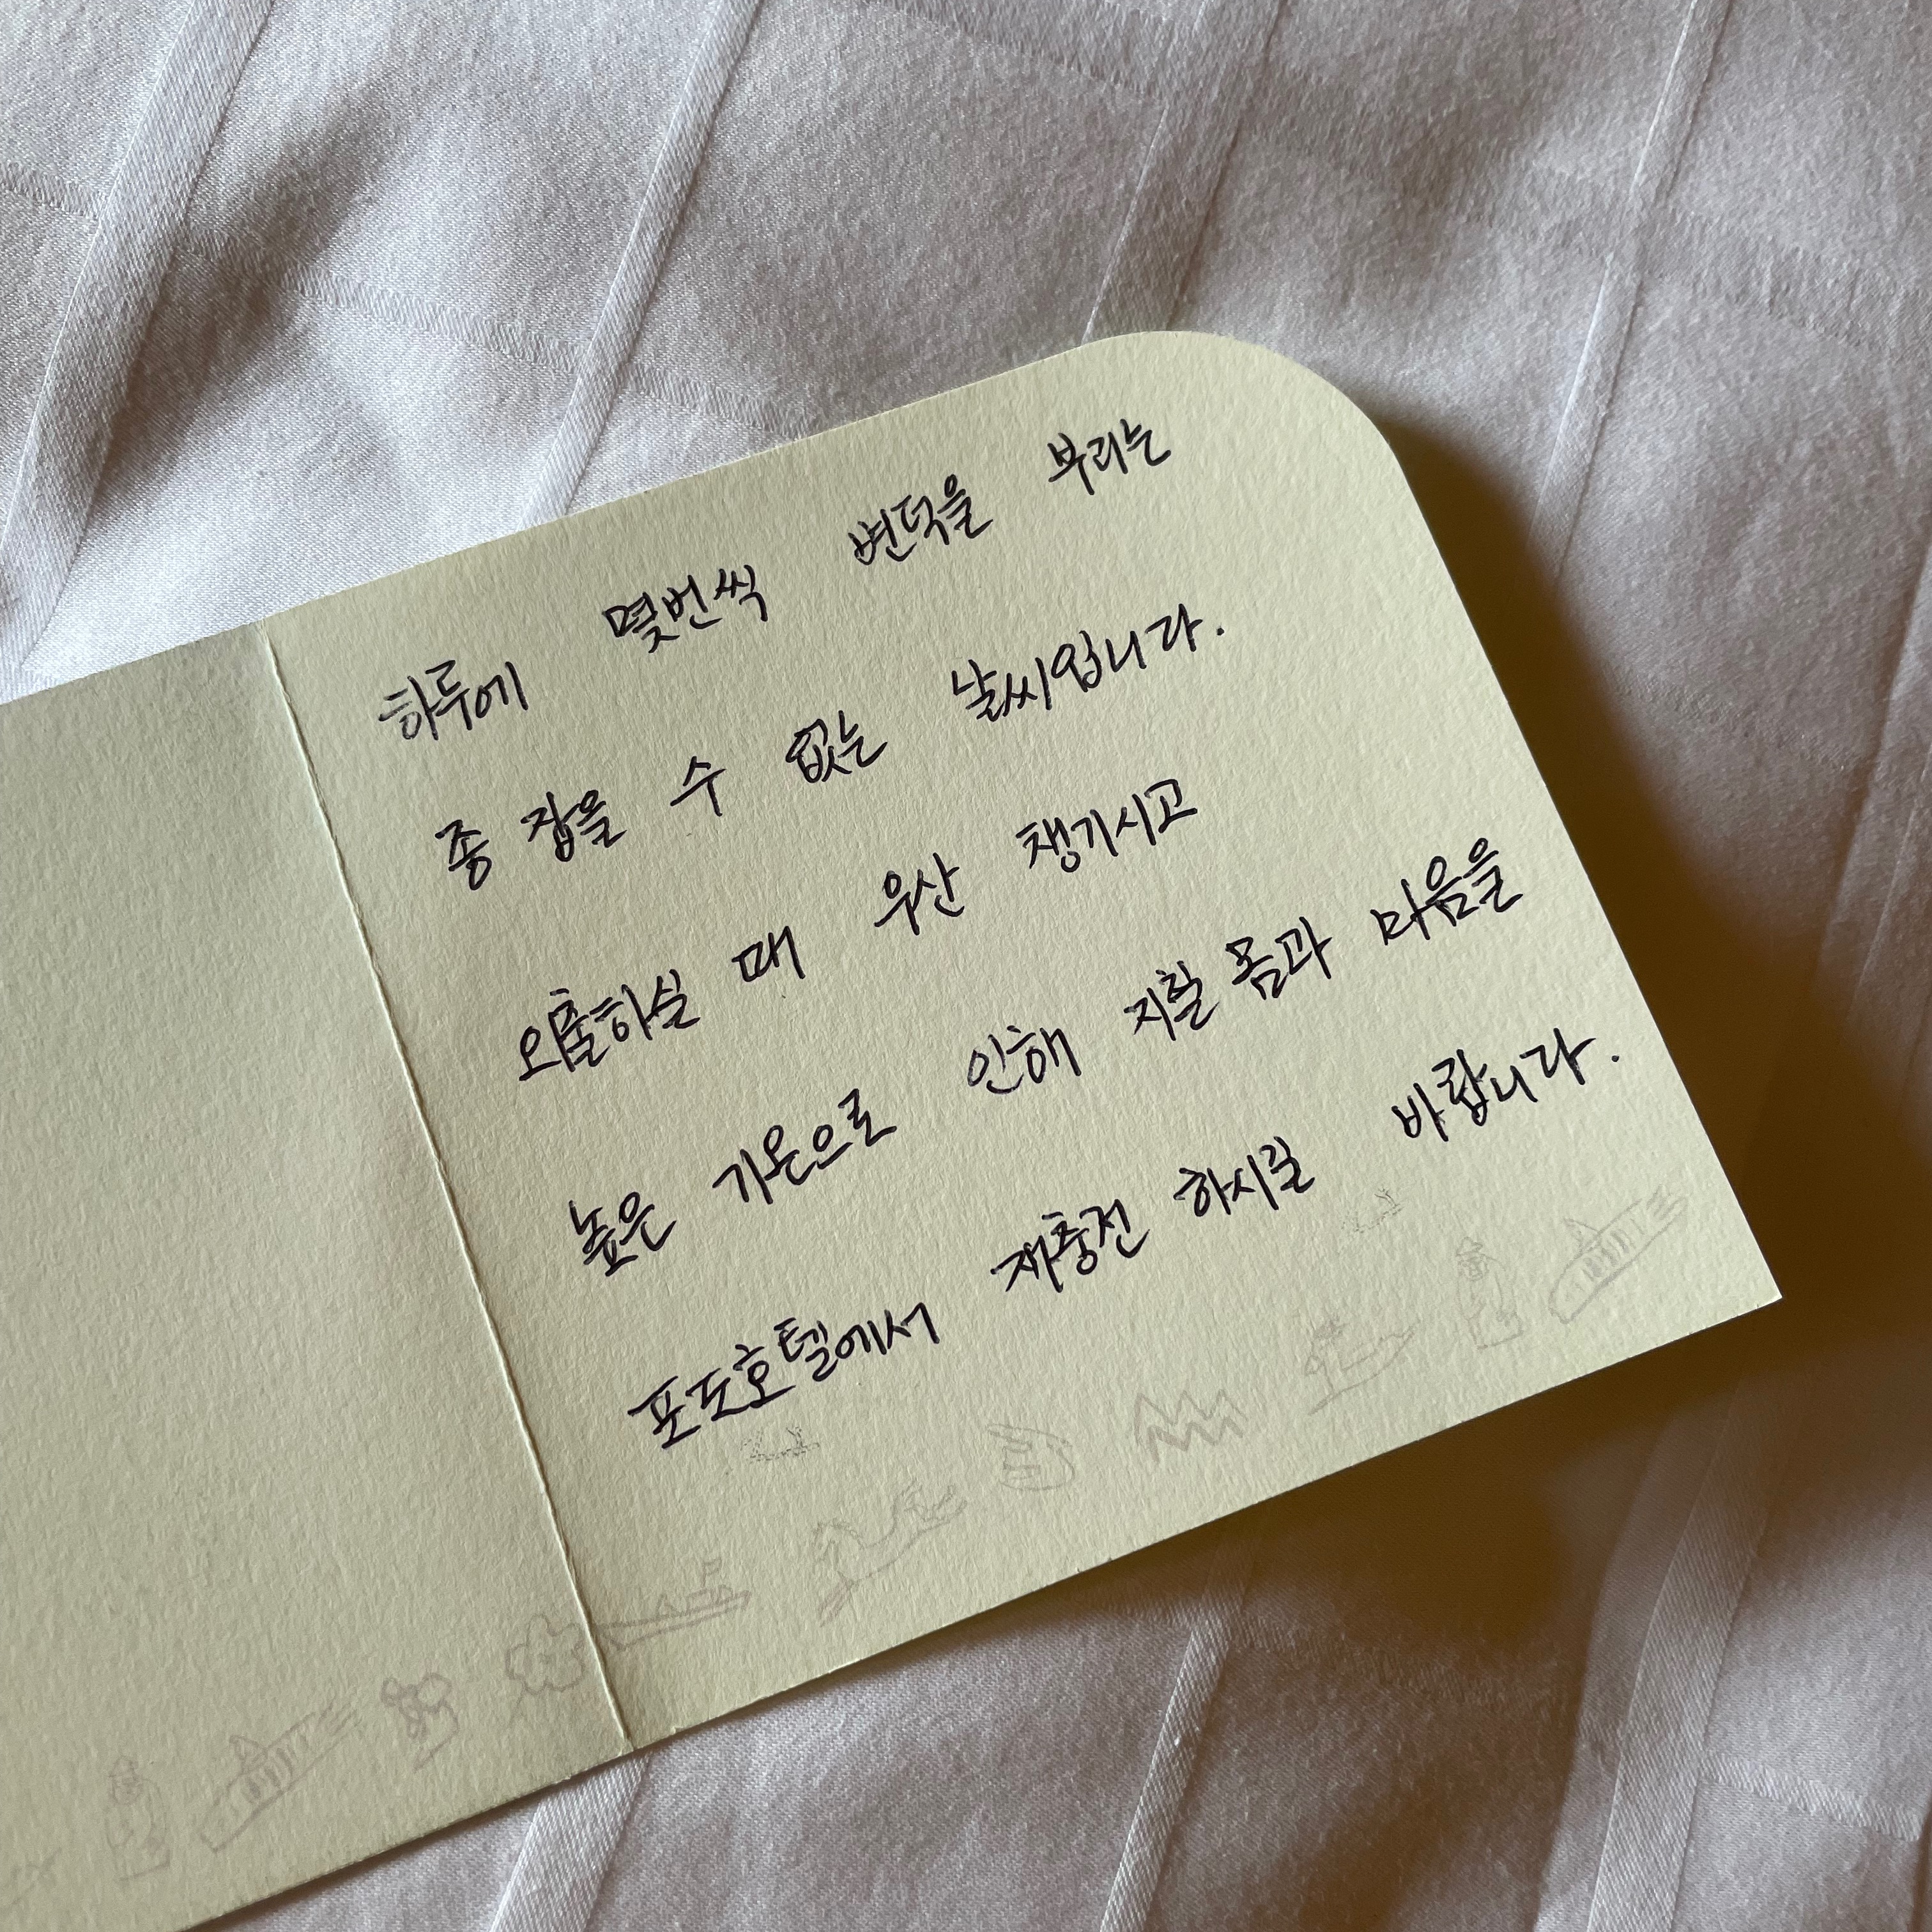 하루에 몇번씩 변덕을 부리는
종 잡을 수 없는 날씨입니다.
외출하실 때 우산 챙기시고
높은 기온으로 인해 지칠 몸과 마음을
포도호텔에서 재충전 하시길 바랍니다.